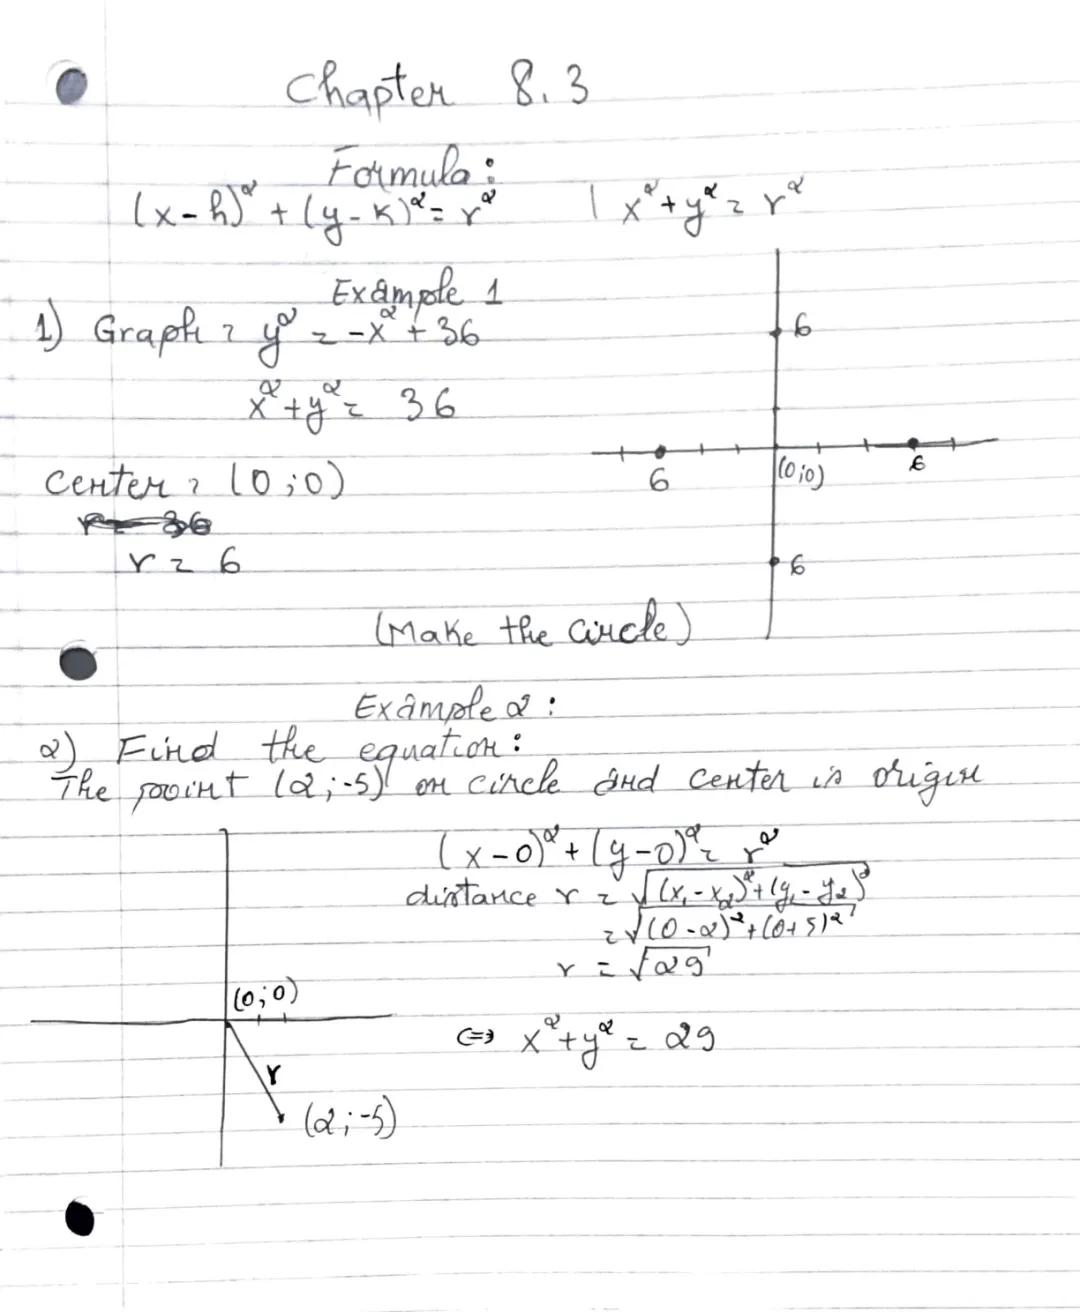 Chapter 8.3
Formula:
(x-h)² + (y-k)² = r² | x²+y² = r²
Example 1
1) Graph = y² = -x² + 36
x²+y² = 36
Center = (0;0)
r = 6
6
6
(0;0)
6
6
(Make the circle)
Example 2:
2) Find the equation:
The point (2;-5) on circle and center is origin
(x-0)² + (y-0)² = r²
distance r = √(x₁-x₂)²+(y₁-y₂)²
= √(0-2)²+(0+5)²
r = √29
⇔ x²+y² = 29
(0;0)
r
(2;-5)